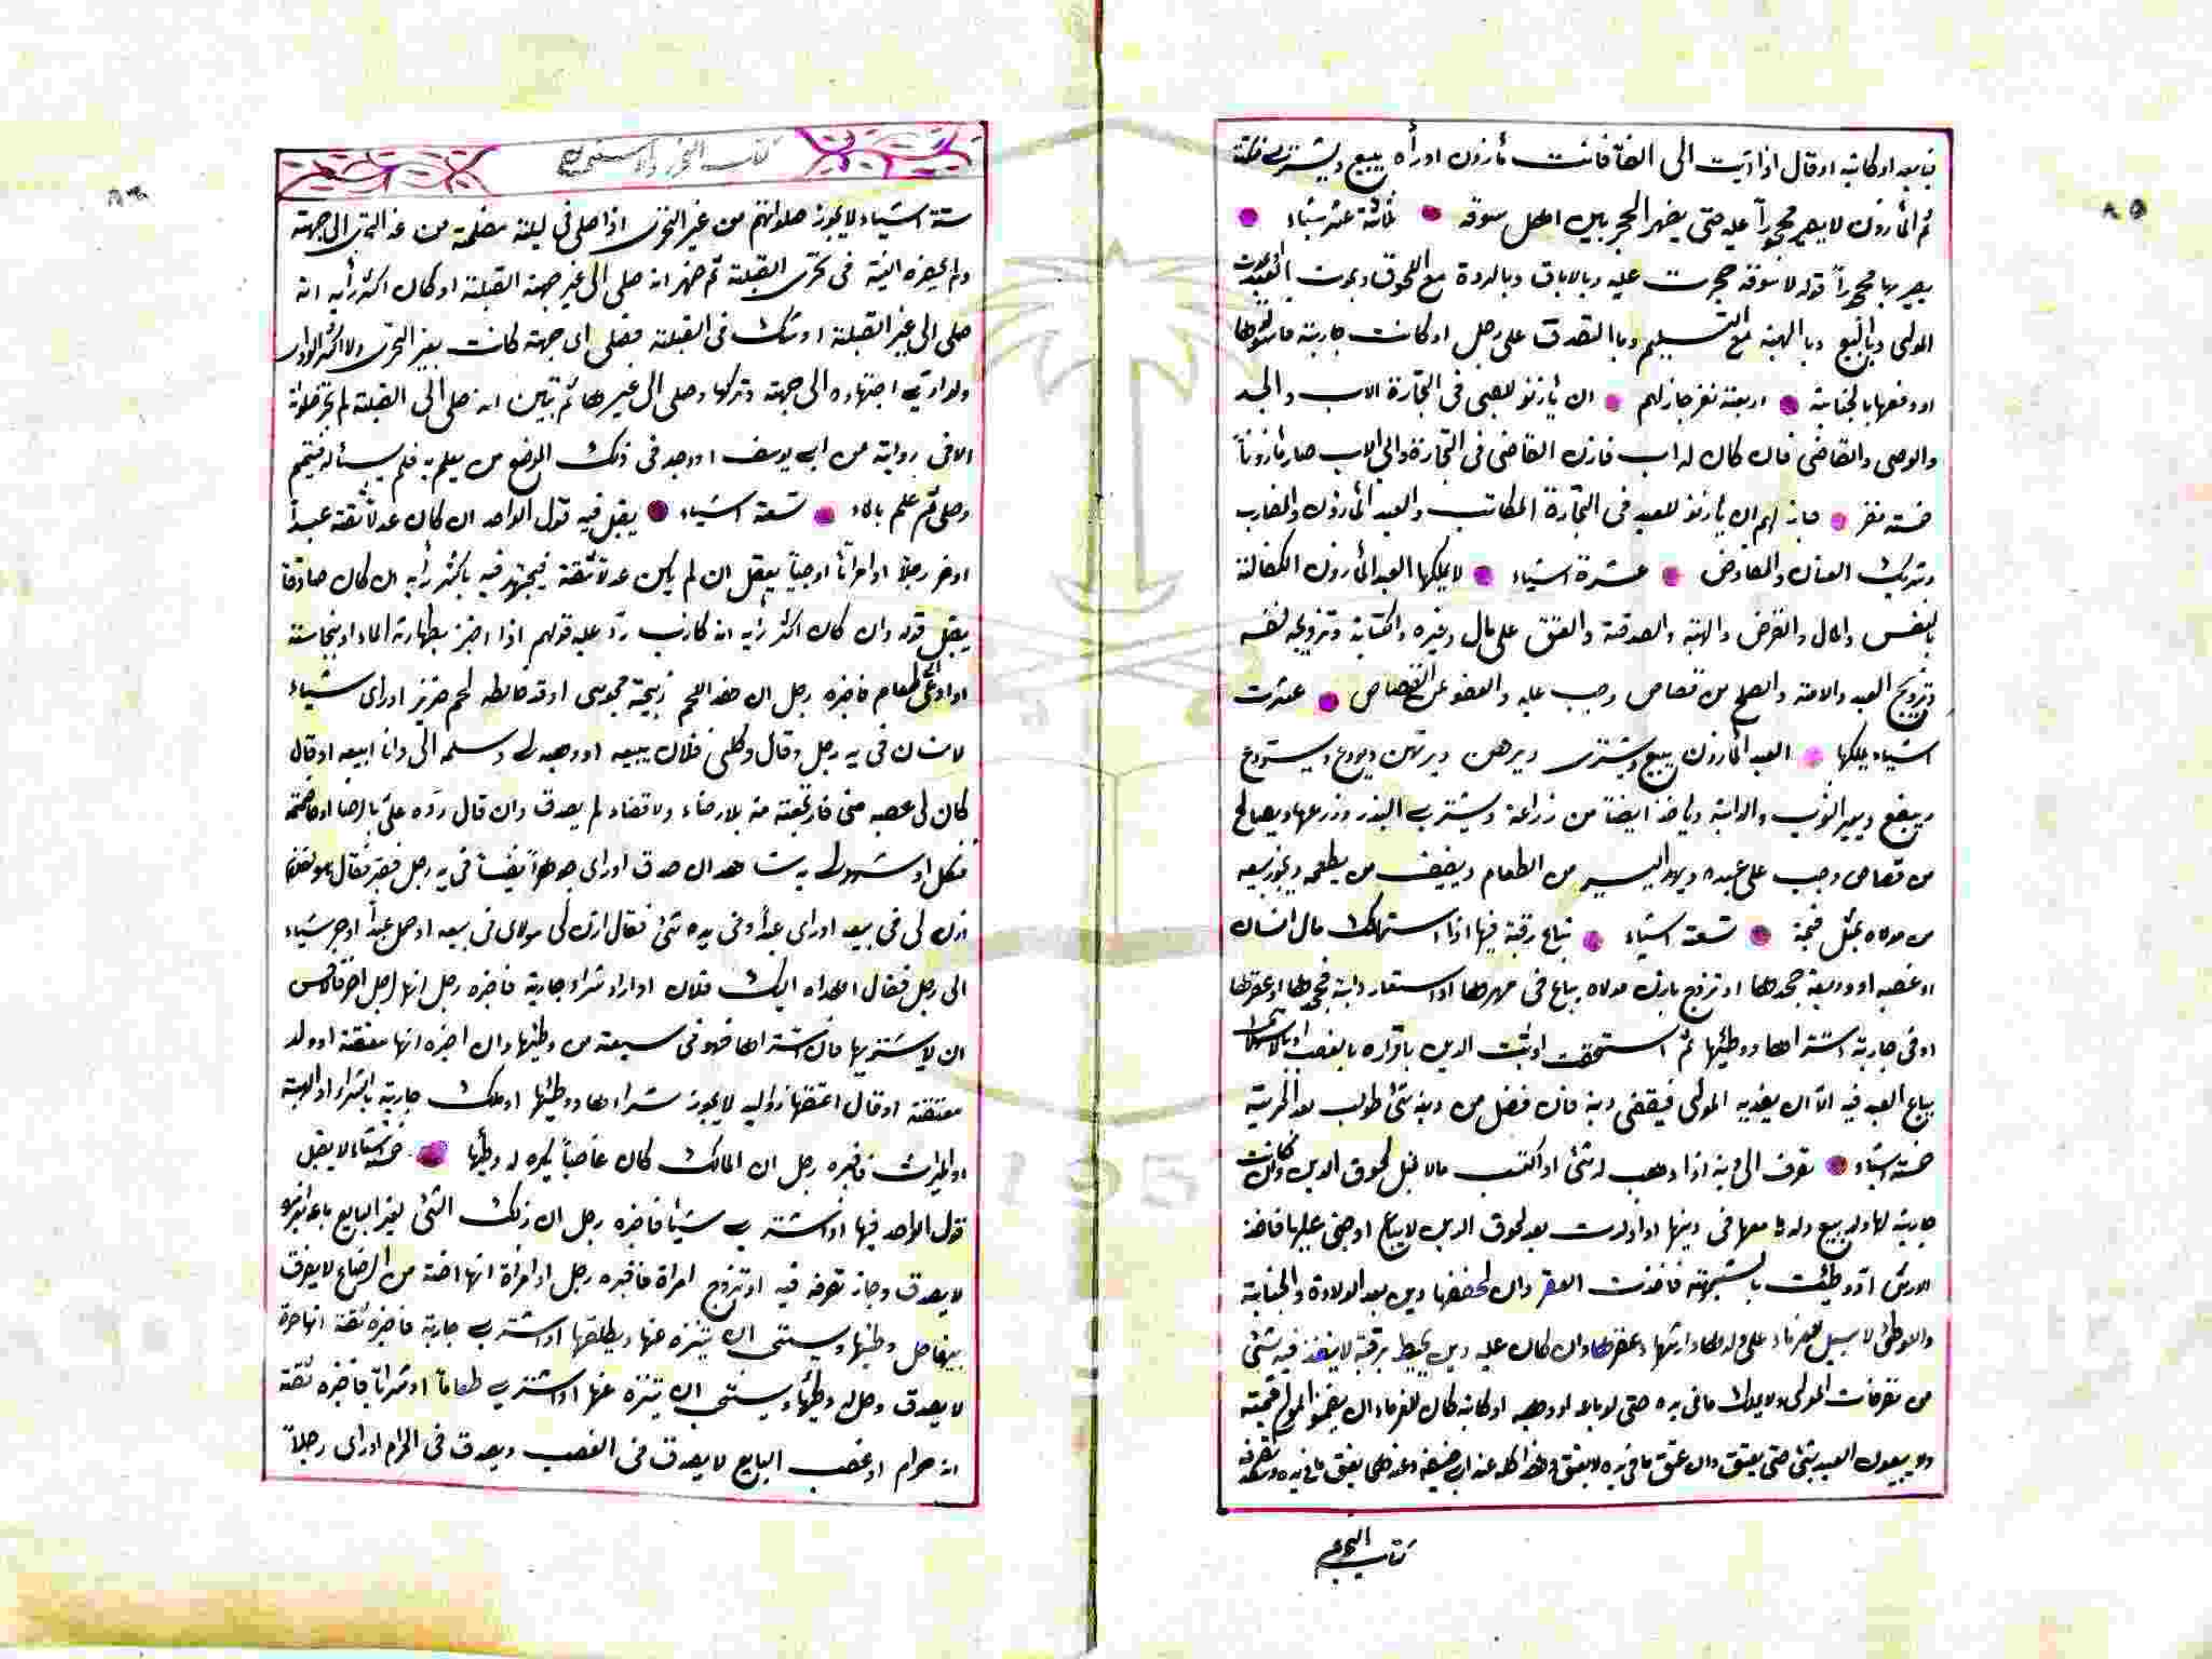 فباعه او كاتبه او قال اذا اديت الى الفا فانت مأذون او رأه يبيع ويشترى فسكت
ثم المأذون لا يصير محجوراً عليه حتى يظهر الحجر بين اهل سوقه ثمانية عشر شياء
يصير بها محجوراً قوله لا سوقه حجرت عليه وبالاباق وبالردة مع اللحوق وبموت العبد وبموت
المولى وبالبيع وبالهبة مع التسليم وبالتصدق على رجل او كانت جارية
او دفعها بالجناية اربعة نفر جاز لهم ان يأذنوا للصبى فى التجارة الاب والجد
والوصى والقاضى فان كان له اب فاذن القاضى فى التجارة وابى الاب صار مأذوناً
خمسة نفر جاز لهم ان يأذنوا للعبد فى التجارة المكاتب والعبد المأذون والمضارب
وشريك العنان والمفاوض عشرة اشياء لا يملكها العبد المأذون الكفالة
بالنفس والمال والقرض والهبة والصدقة والعتق على مال وغيره والكتابة وتزويجه نفسه
وتزويج العبد والامة والصلح من قصاص وجب عليه والعفو عن القصاص عشرت
اشياء يملكها العبد المأذون يبيع ويشترى ويرهن ويرتهن ويودع ويستودع
ويبضع ويعير الثوب والدابة وياخذ ايضاً من زراعة ويشترى البذر وزرعها ويصالح
من قصاص وجب على عبده ويهد اليسير من الطعام ويضيف من يطعمه ويجوز بيعه
من مولاه بمثل قيمة تسعة اشياء تباع رقبة فيها اذا استهلك مال انسان
او غصبه او وديعة جحدها او تزوج باذن مولاه يباع فى مهرها او استعار دابة فجحدها او عقرها
او فى جارية اشتراها ووطئها ثم استحقت او ثبت الدين باقراره بالغصب
يباع العبد فيه الا ان يفديه المولى فيقضى دينه فان فضل من دينه شئ طولب بعد الحرية
خمسة اشياء تصرف الى دينه اذا وهب له شئ او اكتسب مالا قبل لحوق الدين وكانت
جارية لها ولد يبيع ولدها معها فى دينها او ولدت بعد لحوق الدين لا يباع او جنى عليها فاخذ
الارش او وطئت بالشبهة فاخذت العقر وان لحقها دين بعد الولادة والجناية
والوطئ لا سبيل للغرماء على ولدها وارشها وعقرها وان كان عليه دين يحيط برقبة لا ينفذ فيه شئ
من تصرفات المولى ولا يملك ما فى يده حتى لو باعه او وهبه او كاتبه كان للغرماء ان يضمنوا المولى قيمته
ولا يبيعون العبد بشئ حتى يعتق وان عتق ما فى يده لا يعتق وهذا كله عند ابى حنيفة وعندهما يعتق ما فى يده
كتاب التحرى
كتاب التحرى والاستحسان
ستة اشياء لا يجوز صلواتهم من غير التحرى اذا صلى فى ليلة مظلمة من غير التحرى الى جهة
ولم يحضره النية فى تحرى القبلة ثم ظهر انه صلى الى غير جهة القبلة او كان اكثر رأيه انه
صلى الى غير القبلة او شك فى القبلة فصلى اى جهة كانت بغير التحرى
ولو اوتى اجتهاده الى جهة وتركها وصلى الى غيرها ثم تبين انه صلى الى القبلة لم يجز صلوته
الا فى رواية من ابى يوسف او وجد فى ذلك الموضع من يعلم به فلم يسئاله فيتمم
وصلى ثم علم بالماء تسعة اشياء يقبل فيه قول الواحد ان كان عدلا ثقة عبداً
او حر رجلا او امرأتاً او صبياً يعقل ان لم يكن عدلا ثقة فيجتهد فيه باكثر رأيه ان كان صادقا
يقبل قوله وان كان اكثر رأيه انه كاذب ردّ عليه قولهم اذا اخبر بطهارة الماء او بنجاسته
او ادعى لطعام فاخبره رجل ان هذا اللحم ذبيحة مجوسى او قد خالطه لحم خنزير او راى شياء
لانسان فى يد رجل وقال وكلنى فلان يبيعه او وهبه لى وسلمه الى وانا ابيعه او قال
كان لى غصبه منى فارتجعته منه بلا رضاء ولا قضاء لم يصدق وان قال رده على بالرضا
فنكل او شهود لى به شاهدان صدق او راى جوهراً نفيساً فى يد رجل فقير فقال
اذن لى فى بيعه او راى عبداً وفى يده شئ فقال اذن لى مولاى فى بيعه او حمل عبداً او حر شياء
الى رجل فقال اهداه اليك فلان او اراد شراء جارية فاخبره رجل انها لرجل اخر
ان لا يشتريها فان اشتراها فهو فى سعة من وطئها وان اخبره انها معتقة او ولد
معتقة او قال اعتقها ذو اليد لا يجوز شراءها ووطئها او ملك جارية بالشراء او الهبة
او الميراث فاخبره رجل ان المالك كان غاصباً يكره له وطئها خمسة اشياء لا يقبل
قول الواحد فيها اذا اشترى شيئا فاخبره رجل ان ذلك الشئ لغير البايع
لا يصدق وجاز تصرفه فيه او تزوج امراة فاخبره رجل او امراة انها اخته من الرضاع لا يفرق
بينهما حل وطئها ويستحب ان يتنزه عنها ويطلقها او اشترى جارية فاخبره ثقة انها حرة
لا يصدق وحل له وطئها ويستحب ان يتنزه عنها او اشترى طعاماً او شراباً فاخبره ثقة
انه حرام او غصب البايع لا يصدق فى الغصب ويصدق فى الحرام او راى رجلاً